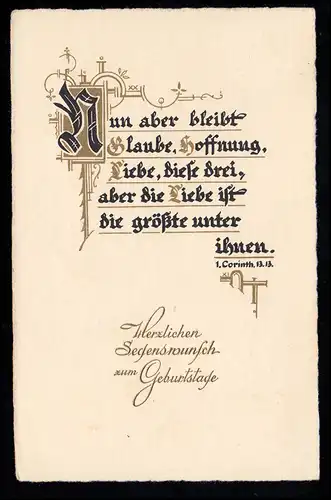 Nun aber bleibt
Glaube, Hoffnung,
Liebe, diese drei,
aber die Liebe ist
die größte unter
ihnen.
1. Corinth. 13. 13.
Herzlichen
Segenswunsch
zum Geburtstage